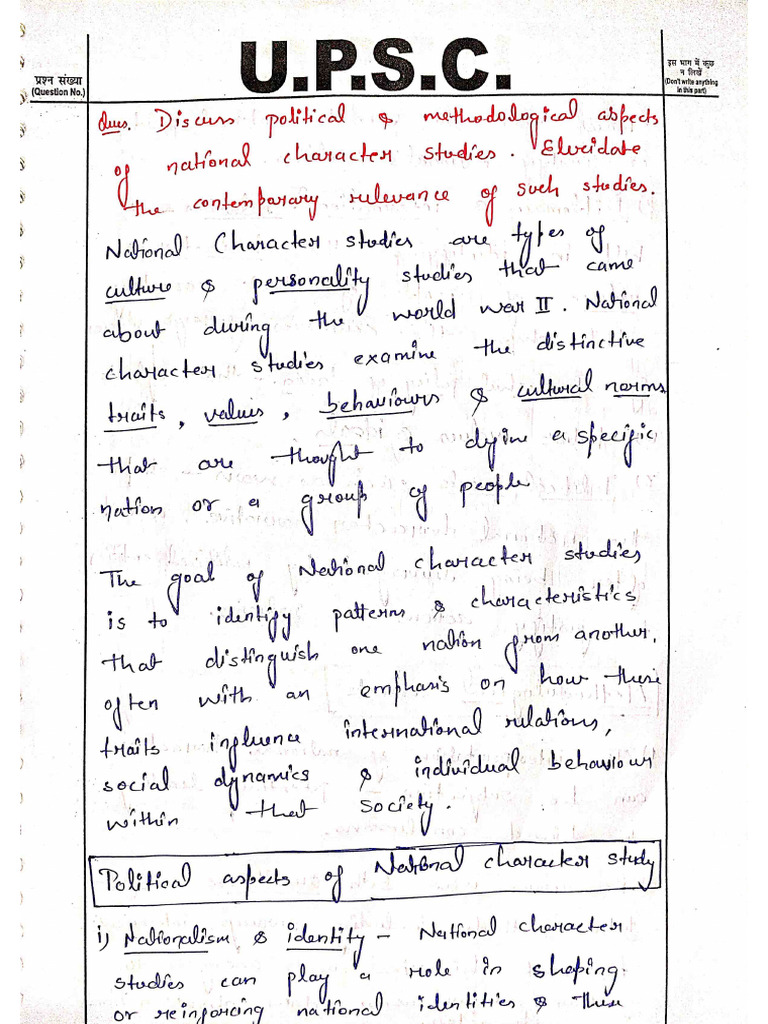 U.P.S.C.
प्रश्न संख्या
(Question No.)
इस भाग में कुछ
न लिखें
(Don't write anything
in this part)
Ques. Discuss political & methodological aspects
of national character studies. Elucidate
the contemporary relevance of such studies.
National Character studies are types of
culture & personality studies that came
about during the world war II. National
character studies examine the distinctive
traits, values, behaviours & cultural norms
that are thought to define a specific
nation or a group of people
The goal of National character studies
is to identify patterns & characteristics
that distinguish one nation from another,
often with an emphasis on how these
traits influence international relations,
social dynamics & individual behaviour
within that society.
Political aspects of National character study
i) Nationalism & identity - National character
studies can play a role in shaping
or reinforcing national identities & these